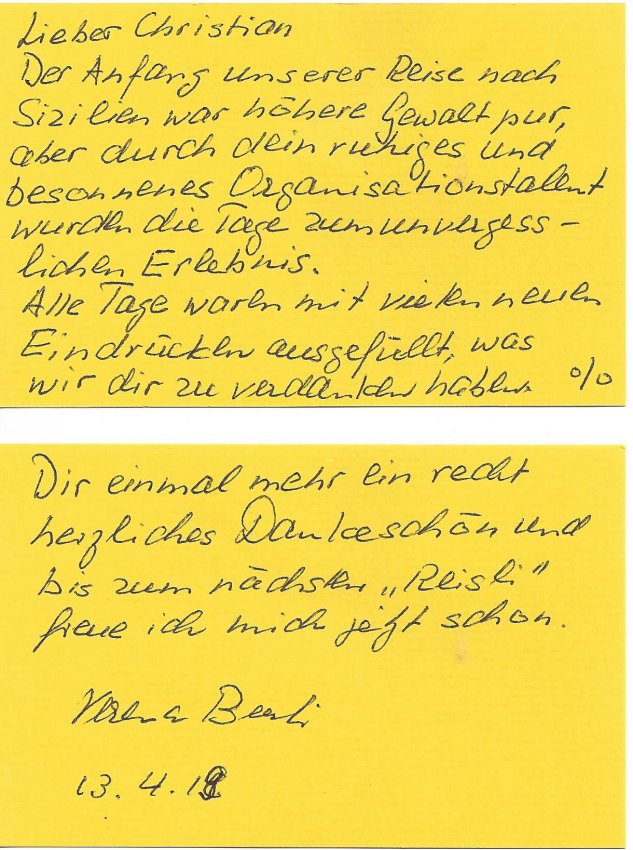 Lieber Christian
Der Anfang unserer Reise nach
Sizilien war höhere Gewalt pur,
aber durch dein ruhiges und
besonnenes Organisationstalent
wurden die Tage zum unvergess-
lichen Erlebnis.
Alle Tage waren mit vielen neuen
Eindrücken ausgefüllt, was
wir dir zu verdanken haben. o/o
Dir einmal mehr ein recht
herzliches Dankeschön und
bis zum nächsten „Reisli"
freue ich mich jetzt schon.
Verena
13.4.1